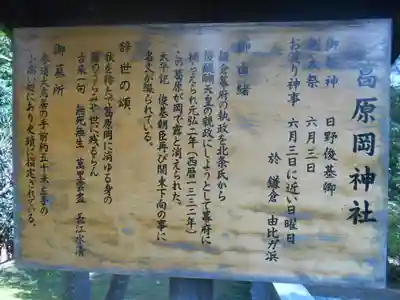 葛原岡神社
御祭神 日野俊基卿
例大祭 六月三日
お渡り神事 六月三日に近い日曜日
於 鎌倉 由比ガ浜
御由緒
鎌倉幕府の執政を北条氏から
後醍醐天皇の親政にしようとして幕府に
捕らえられ元弘二年(西暦一三三二年)
この葛原が岡で露と消えられた。
太平記 俊基朝臣再び関東下向の事に
名文が綴られている。
辞世の頌、
秋を待たで葛原岡に消ゆる身の
露のうらみや世に残るらん
古来一句 無死無生 萬里雲盡 長江水清
御墓所
参道大鳥居の手前約五十米と手の
小高い処にあり史蹟に指定されている。